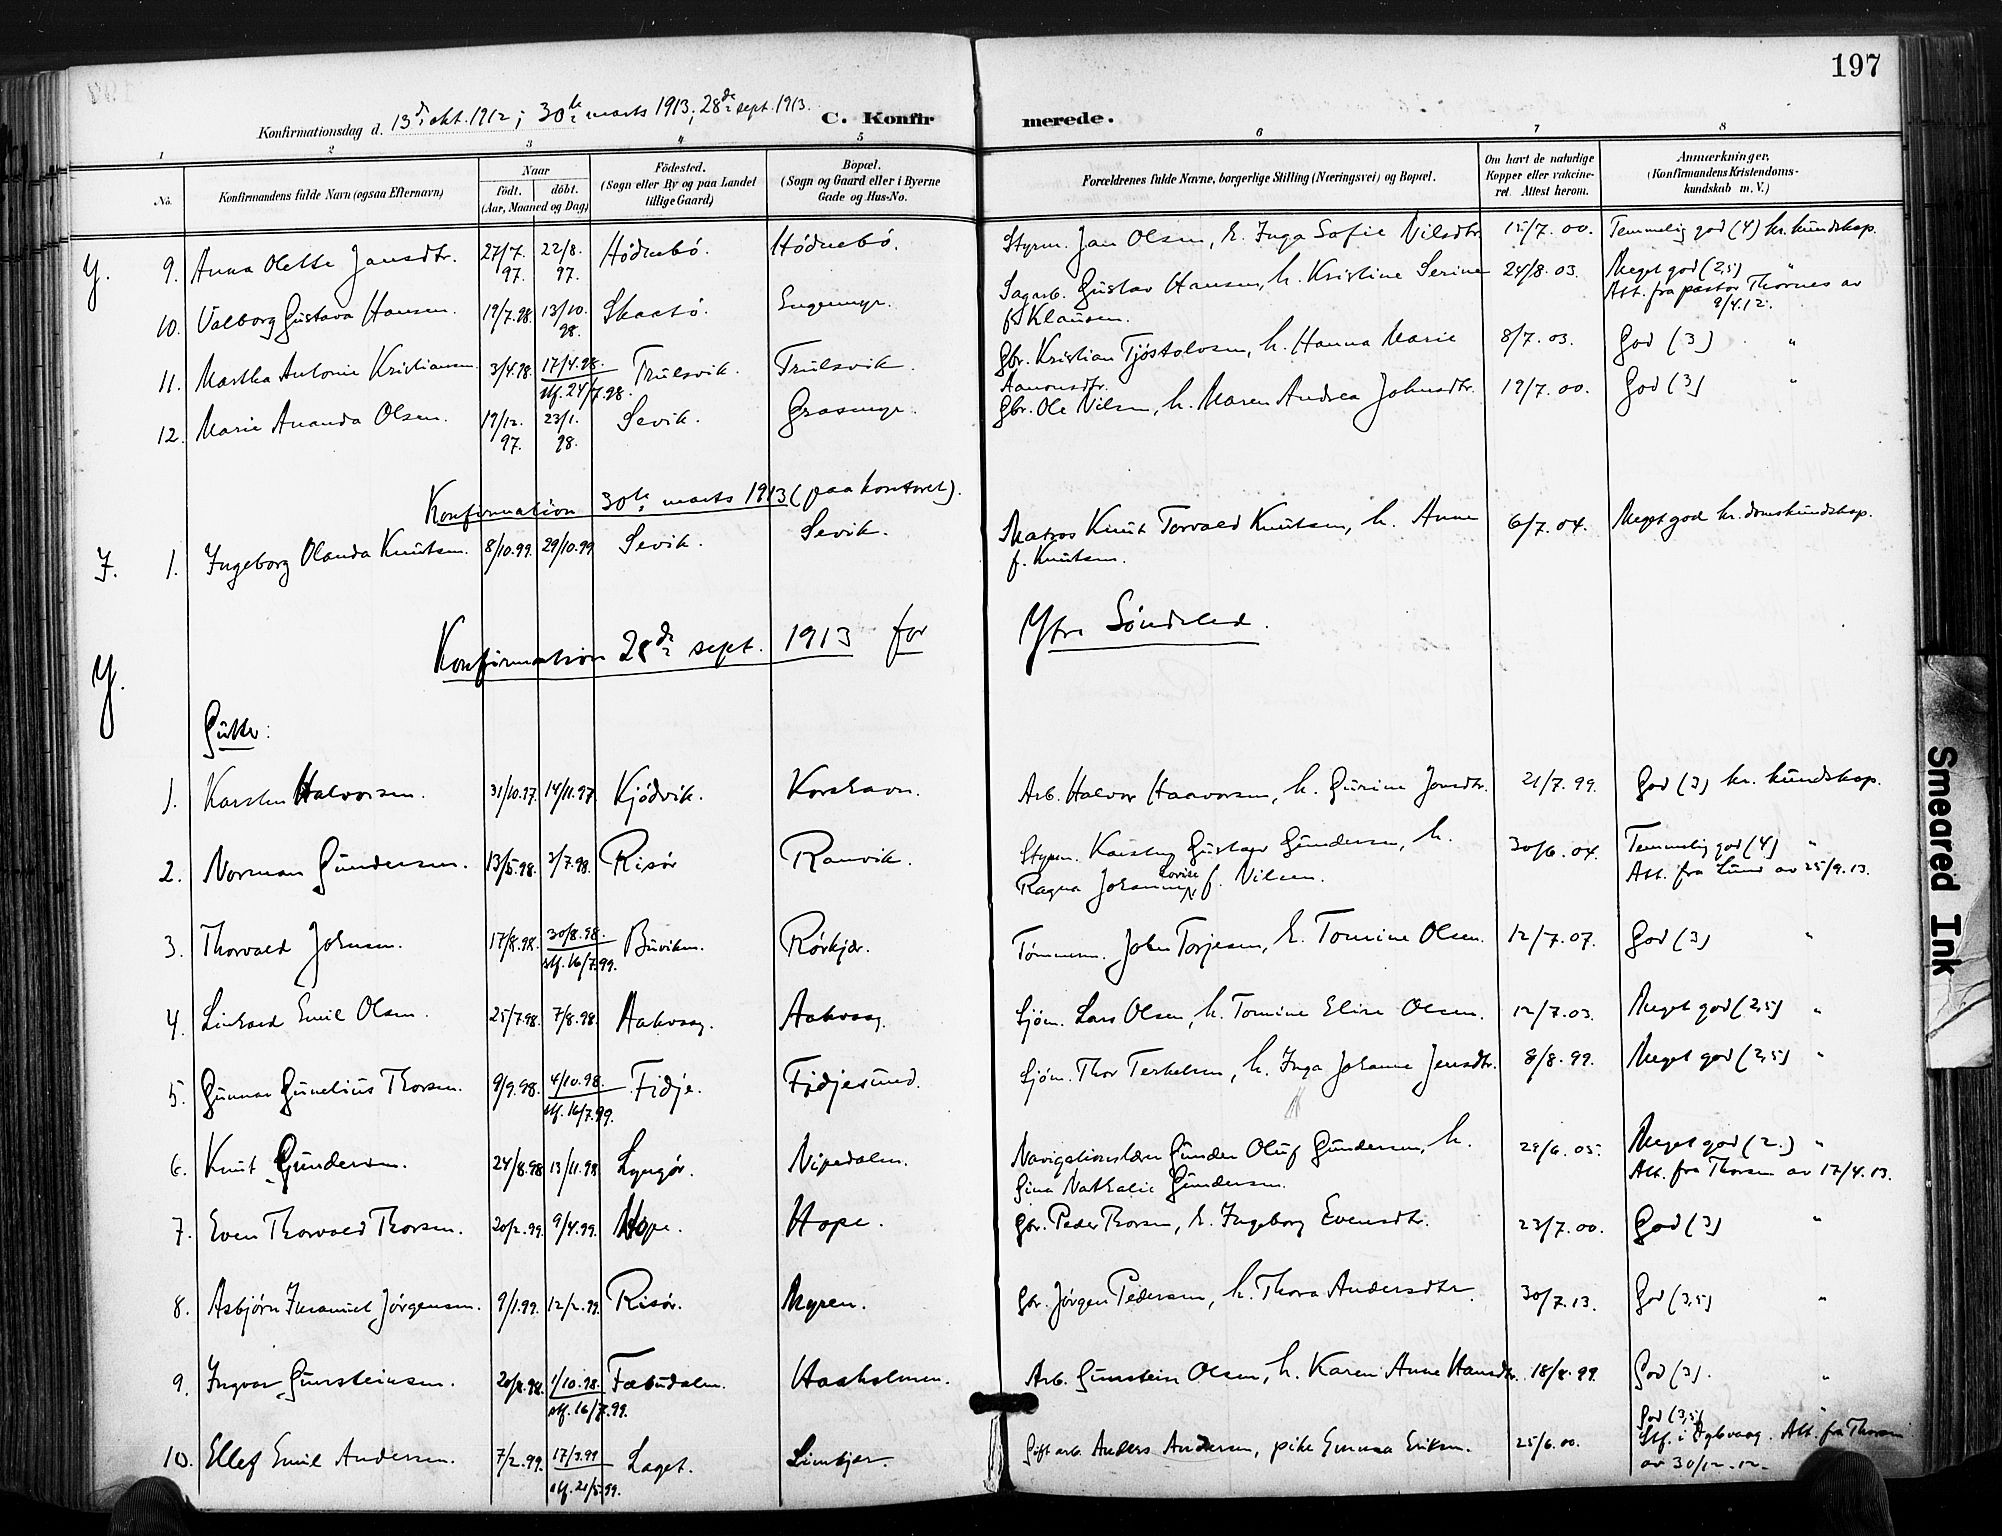 197
Konfirmationsdag d. 13de okt. 1912; 30te marts 1913; 28de sept. 1913.
C. Konfirmerede.
1 2 3 4 5 6 7 8
No.
Konfirmandens fulde Navn (ogsaa Efternavn)
Naar
födt. döbt.
(Aar, Maaned og Dag)
Födested.
(Sogn eller By og paa Landet
tillige Gaard)
Bopæl.
(Sogn og Gaard eller i Byerne
Gade og Hus-No.
Forældrenes fulde Navne, borgerlige Stilling (Næringsvei) og Bopæl.
Om havt de naturlige
Kopper eller vakcine-
ret. Attest herom.
Anmærkninger,
(Konfirmandens Kristendoms-
kundskab m. V.)
Y. 9. Anna Olette Jansdtr. 27/7. 97. 22/8. 97. Hódnebó. Hódnebó. Styrm. Jan Olsen, h. Inga Sofie Nilsdtr. 15/7. 00. Temmelig god (4) kr. kundskap.
10. Valborg Gustava Hansen. 19/7.98. 13/10. 98. Skaató. Engemyr. Sagarb. Gustav Hansen, h. Kristine Serine 24/8. 03. Meget god (2,5) "
f. Klausen. Att. fra pastor Thornes av
9/4.12.
11. Martha Antonie Kristiansen. 3/4.98. 17/4.98. Trulsvik. Trulsvik. Gbr. Kristian Tjóstolvsen, h. Hanna Marie 8/7. 03. God (3) "
stf. 24/7.98. Aanonsdtr.
12. Marie Amanda Olsen. 19/12. 97. 23/1. 98. Sevik. Grasmyr. Gbr. Ole Nilsen, h. Maren Andrea Johnsdtr. 19/7. 00. God (3) "
Konfirmation 30te marts 1913 (paa kontoret).
I. 1. Ingeborg Olanda Knutsen. 8/10.99. 29/10.99 Sevik. Sevik. Matros Knut Torvald Knutsen, h. Anne 6/7. 04. Meget god kr.domskundskap.
f. Knutsen.
Y. Konfirmation 28de sept. 1913 for Ytre Sóndeled.
Gutter:
1. Karsten Halvorsen. 31/10.97. 14/11.97. Kjódvik. Korshavn. Arb. Halvor Haavorsen, h. Gurine Jonsdtr. 21/7. 99. God (3) kr. kundskap.
2. Norman Gundersen. 13/5.98. 3/7.98. Risór Ranvik. Styrm. Karsten Gustav Gundersen, h. 30/6. 04. Temmelig god (4) "
Ragna Johanne Lovise f. Nilsen. Att. fra Lund av 25/9.13.
3. Thorvald Johnsen. 17/8.98. 30/8.98. Buviken. Rórkjær. Tómmerm. John Torjesen, h. Tomine Olsen. 12/7.07. God (3) "
stf. 16/7.99.
4. Linhard Emil Olsen. 25/7.98. 7/8.98. Aakvaag. Aakvaag. Sjóm. Lars Olsen, h. Tomine Elise Olsen. 12/7.03. Meget god (2,5) "
5. Gunnar Gunelius Thorsen. 9/9.98. 4/10.98. Fidje. Fidjesund. Sjóm. Thor Terkelsen, h. Inga Johanne Jensdtr. 8/8. 99. Meget god (2,5) "
stf. 16/7.99.
6. Knut Gundersen. 24/8.98 13/11.98 Lyngór. Nipedalen. Navigationslærer Gunder Oluf Gundersen, h. 29/6. 05. Meget god (2.) "
Gina Nathalie Gundersen. Att. fra Thorsen av 17/4.13.
7. Even Thorvald Thorsen. 20/2.99. 9/4.99. Hope. Hope. Gbr. Peder Thorsen, h. Ingeborg Evensdtr. 23/7. 00. God (3) "
8. Asbjórn Imanuel Jórgensen. 9/1.99. 12/2.99. Risór. Myren. Gbr. Jórgen Pedersen, h. Thora Andersdtr. 30/7.13. God (3,5) "
9. Ingvar Gunsteinsen. 20/8.98. 1/10.98. Fæbudalen. Haaholmen. Arb. Gunstein Olsen, h. Karen Anne Hansdtr. 18/8.99. God (3). "
stf. 16/7.99.
10. Ellef Emil Andersen. 7/2.99. 17/3.99 Laget. Limkjær. Gift arb. Anders Andersen, pike Emma Eriksen. 25/6.00. God (3,5) "
stf. 21/5.99. Stf. i Dybvaag. Att. fra Thorsen
av 30/12.12.
Smeared Ink